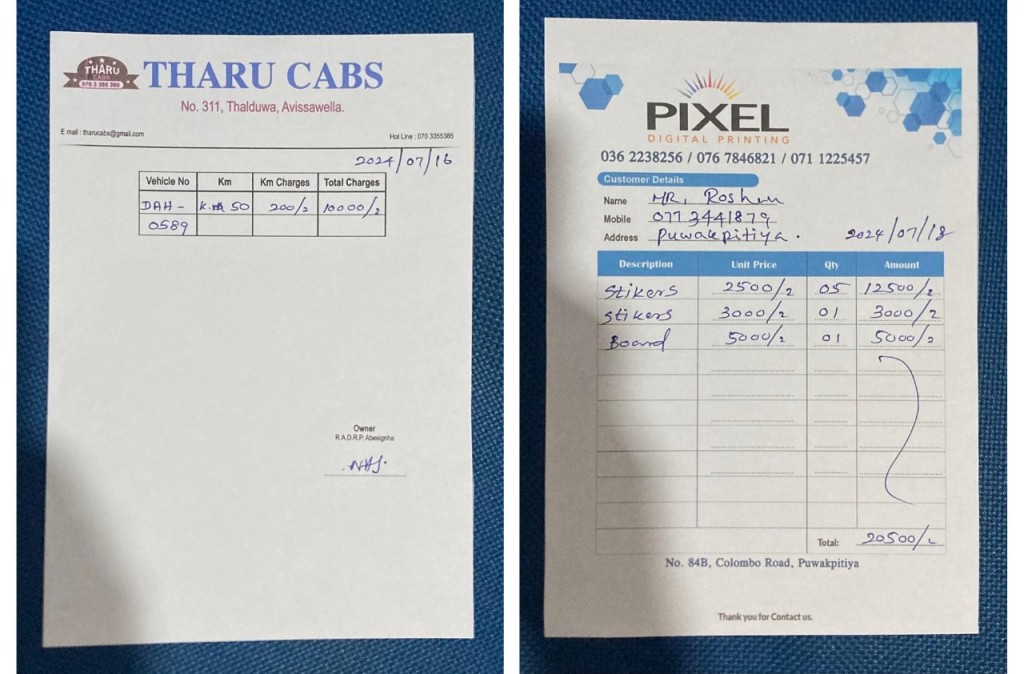 THARU
CABS
THARU CABS
No. 311, Thalduwa, Avissawella.
E mail : tharucabs@gmail.com
Hot Line : 070 3355365
2024/07/16
Vehicle No Km Km Charges Total Charges
DAH - 50 200/= 10000/=
0589
Owner
R.A.D.R.P. Abesignha
PIXEL
DIGITAL PRINTING
036 2238256 / 076 7846821 / 071 1225457
Customer Details
Name MR. Roshan
Mobile 077 3441879
Address Puwakpitiya.
2024/07/18
Description Unit Price Qty Amount
Stikers 2500/= 05 12500/=
Stikers 3000/= 01 3000/=
Board 5000/= 01 5000/=
Total: 20500/=
No. 84B, Colombo Road, Puwakpitiya
Thank you for Contact us.